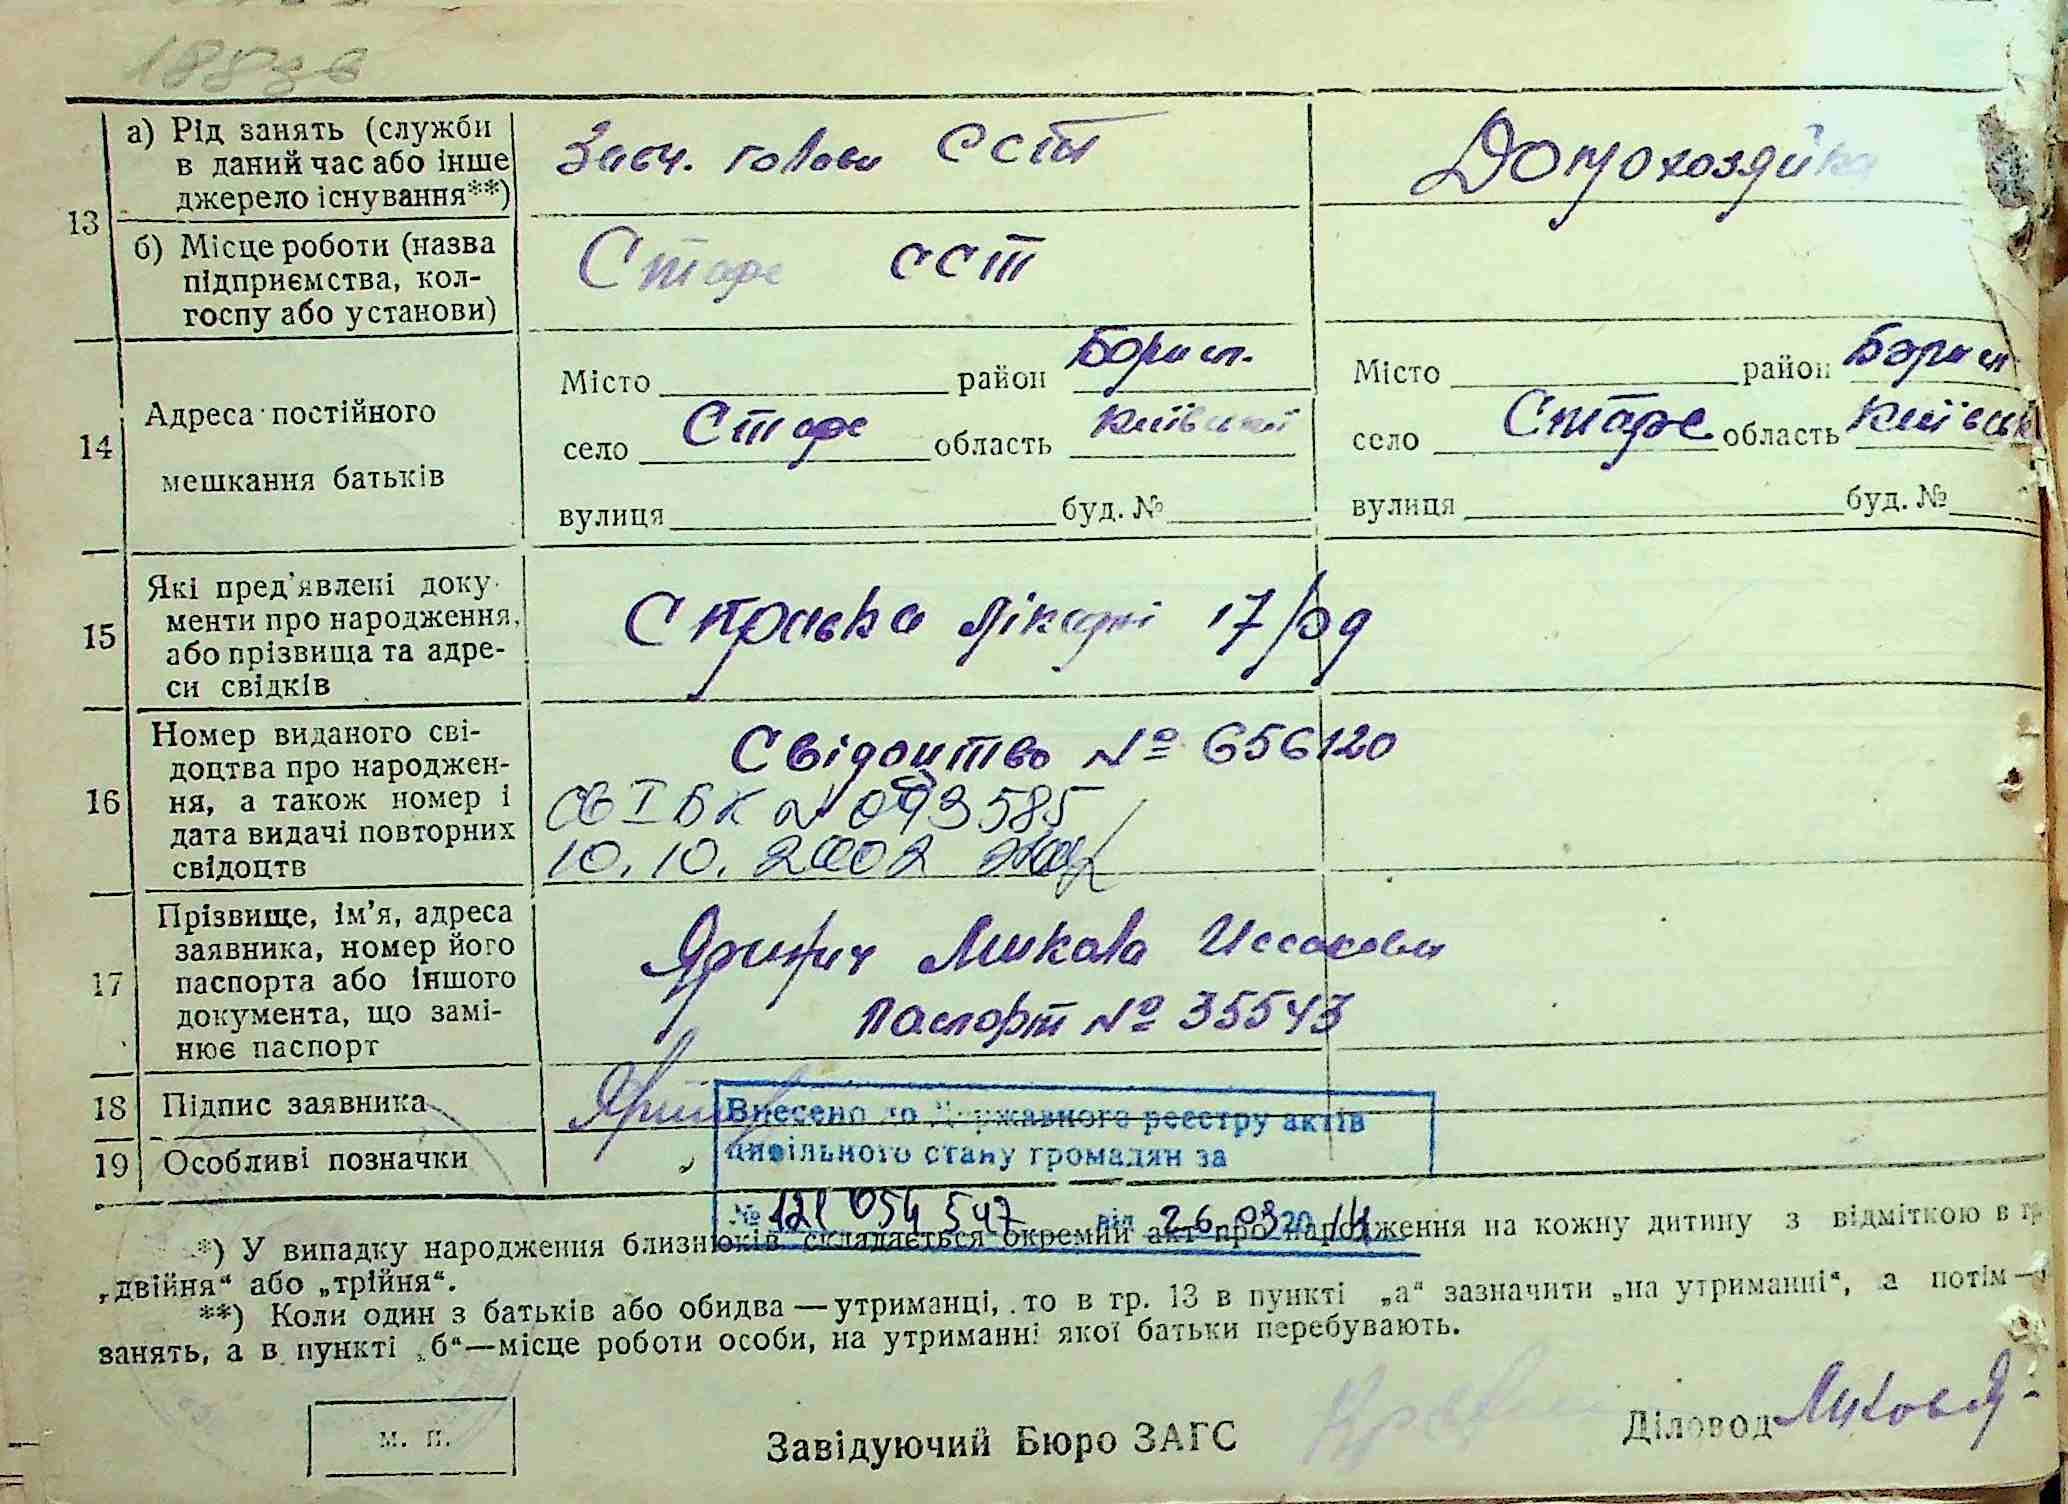 188зв
13
а) Рід занять (служби
в даний час або інше
джерело існування**)
голови ССТ
Домохозяйка
б) Місце роботи (назва
підприємства, кол-
госпу або установи)
Старе ССТ
14
Адреса постійного
мешкання батьків
Місто район Борисп.
село Старе область Київській
вулиця буд. №
Місто район Борисп
село Старе область Київськ
вулиця буд. №
15
Які пред'явлені доку-
менти про народження,
або прізвища та адре-
си свідків
Справка лікарні 17/рд
16
Номер виданого сві-
доцтва про народжен-
ня, а також номер і
дата видачі повторних
свідоцтв
Свідоцтво № 656120
св І БК № 093585
10.10.2002
17
Прізвище, ім'я, адреса
заявника, номер його
паспорта або іншого
документа, що замі-
нює паспорт
Микола
паспорт № 35543
18
Підпис заявника
19
Особливі позначки
Внесено до Державного реєстру актів
цивільного стану громадян за
№ 121 054 547 від 26.03 2014
*) У випадку народження близнюків складається окремий акт про народження на кожну дитину з відміткою в гр
„двійня“ або „трійня“.
**) Коли один з батьків або обидва — утриманці, то в гр. 13 в пункті „а“ зазначити „на утриманні“, а потім —
занять, а в пункті „б“—місце роботи особи, на утриманні якої батьки перебувають.
м. п.
Завідуючий Бюро ЗАГС
Діловод